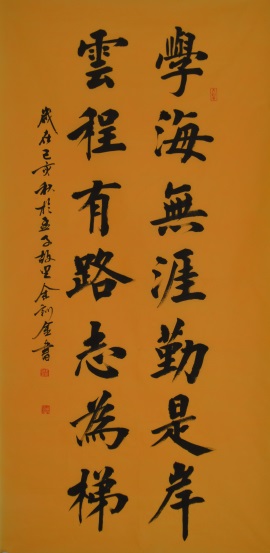 學海無涯勤是岸
雲程有路志為梯
歲在己亥秋於孟子故里金訓金書